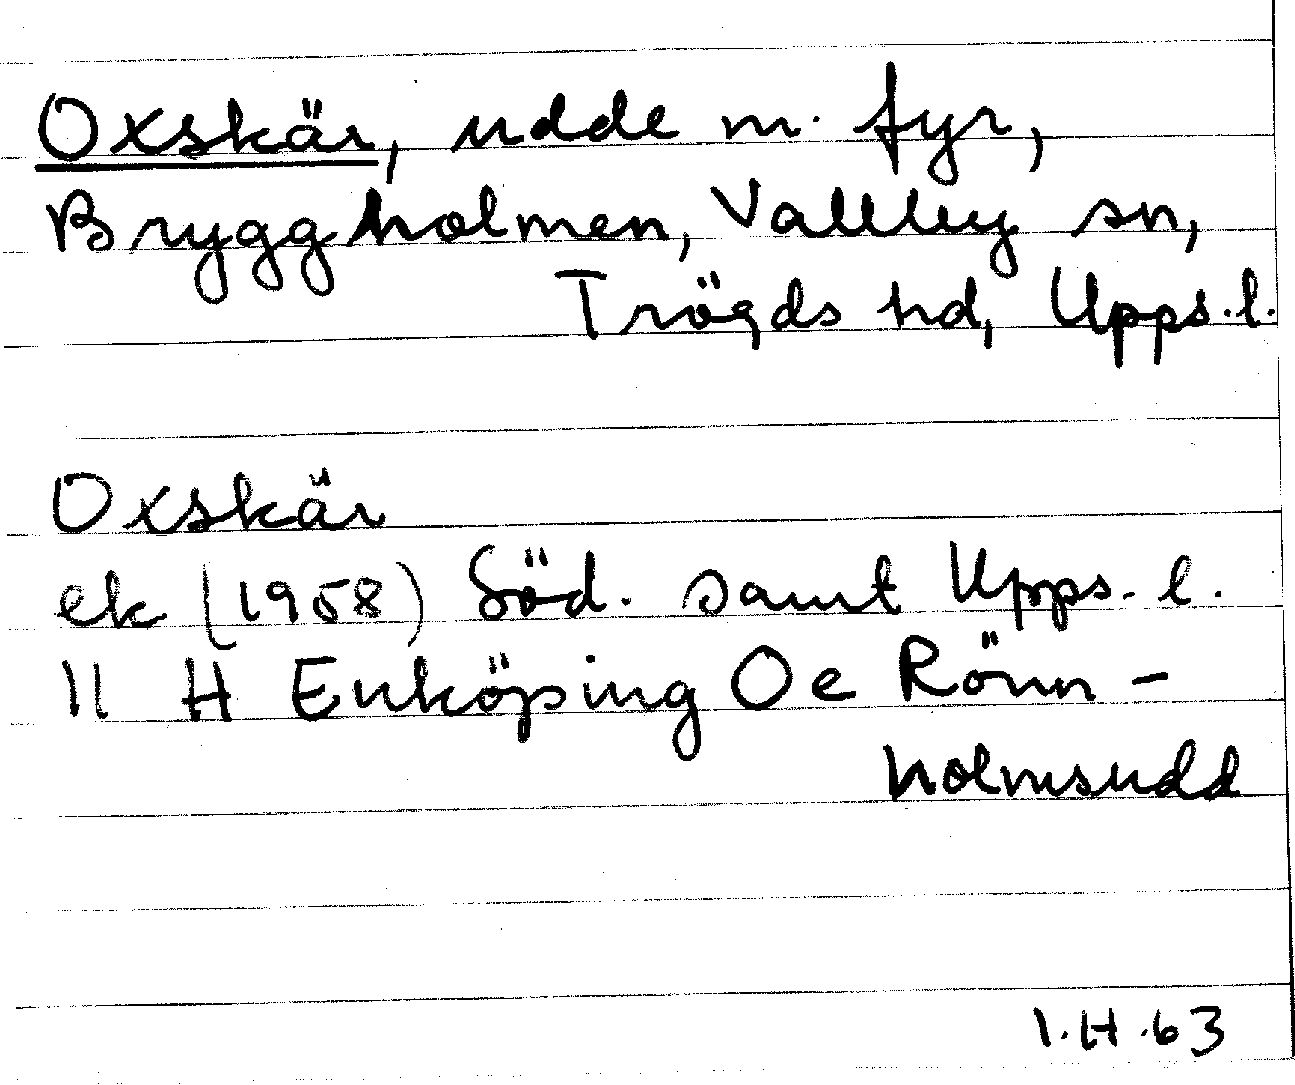 Oxskär, udde m. fyr,
Bryggholmen, Vallby sn,
Trögds hd, Upps.l.
Oxskär
ek (1958) Söd. samt Upps. l.
11 H Enköping Oe Rönn-
holmsudd
I.H.63